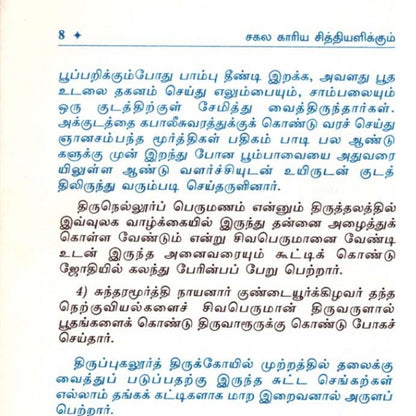 8 ✦ சகல காரிய சித்தியளிக்கும்
பூப்பறிக்கும்போது பாம்பு தீண்டி இறக்க, அவளது பூத
உடலை தகனம் செய்து எலும்பையும், சாம்பலையும்
ஒரு குடத்திற்குள் சேமித்து வைத்திருந்தார்கள்.
அக்குடத்தை கபாலீசுவரத்துக்குக் கொண்டு வரச் செய்து
ஞானசம்பந்த மூர்த்திகள் பதிகம் பாடி பல ஆண்டு
களுக்கு முன் இறந்து போன பூம்பாவையை அதுவரை
யிலுள்ள ஆண்டு வளர்ச்சியுடன் உயிருடன் குடத்
திலிருந்து வரும்படி செய்தருளினார்.
திருநெல்லூர்ப் பெருமணம் என்னும் திருத்தலத்தில்
இவ்வுலக வாழ்க்கையில் இருந்து தன்னை அழைத்துக்
கொள்ள வேண்டும் என்று சிவபெருமானை வேண்டி
உடன் இருந்த அனைவரையும் கூட்டிக் கொண்டு
ஜோதியில் கலந்து பேரின்பப் பேறு பெற்றார்.
4) சுந்தரமூர்த்தி நாயனார் குண்டையூர்க்கிழவர் தந்த
நெற்குவியல்களைச் சிவபெருமான் திருவருளால்
பூதங்களைக் கொண்டு திருவாரூருக்கு கொண்டு போகச்
செய்தார்.
திருப்புகலூர்த் திருக்கோயில் முற்றத்தில் தலைக்கு
வைத்துப் படுப்பதற்கு இருந்த சுட்ட செங்கற்கள்
எல்லாம் தங்கக் கட்டிகளாக மாற இறைவனால் அருளப்
பெற்றார்.